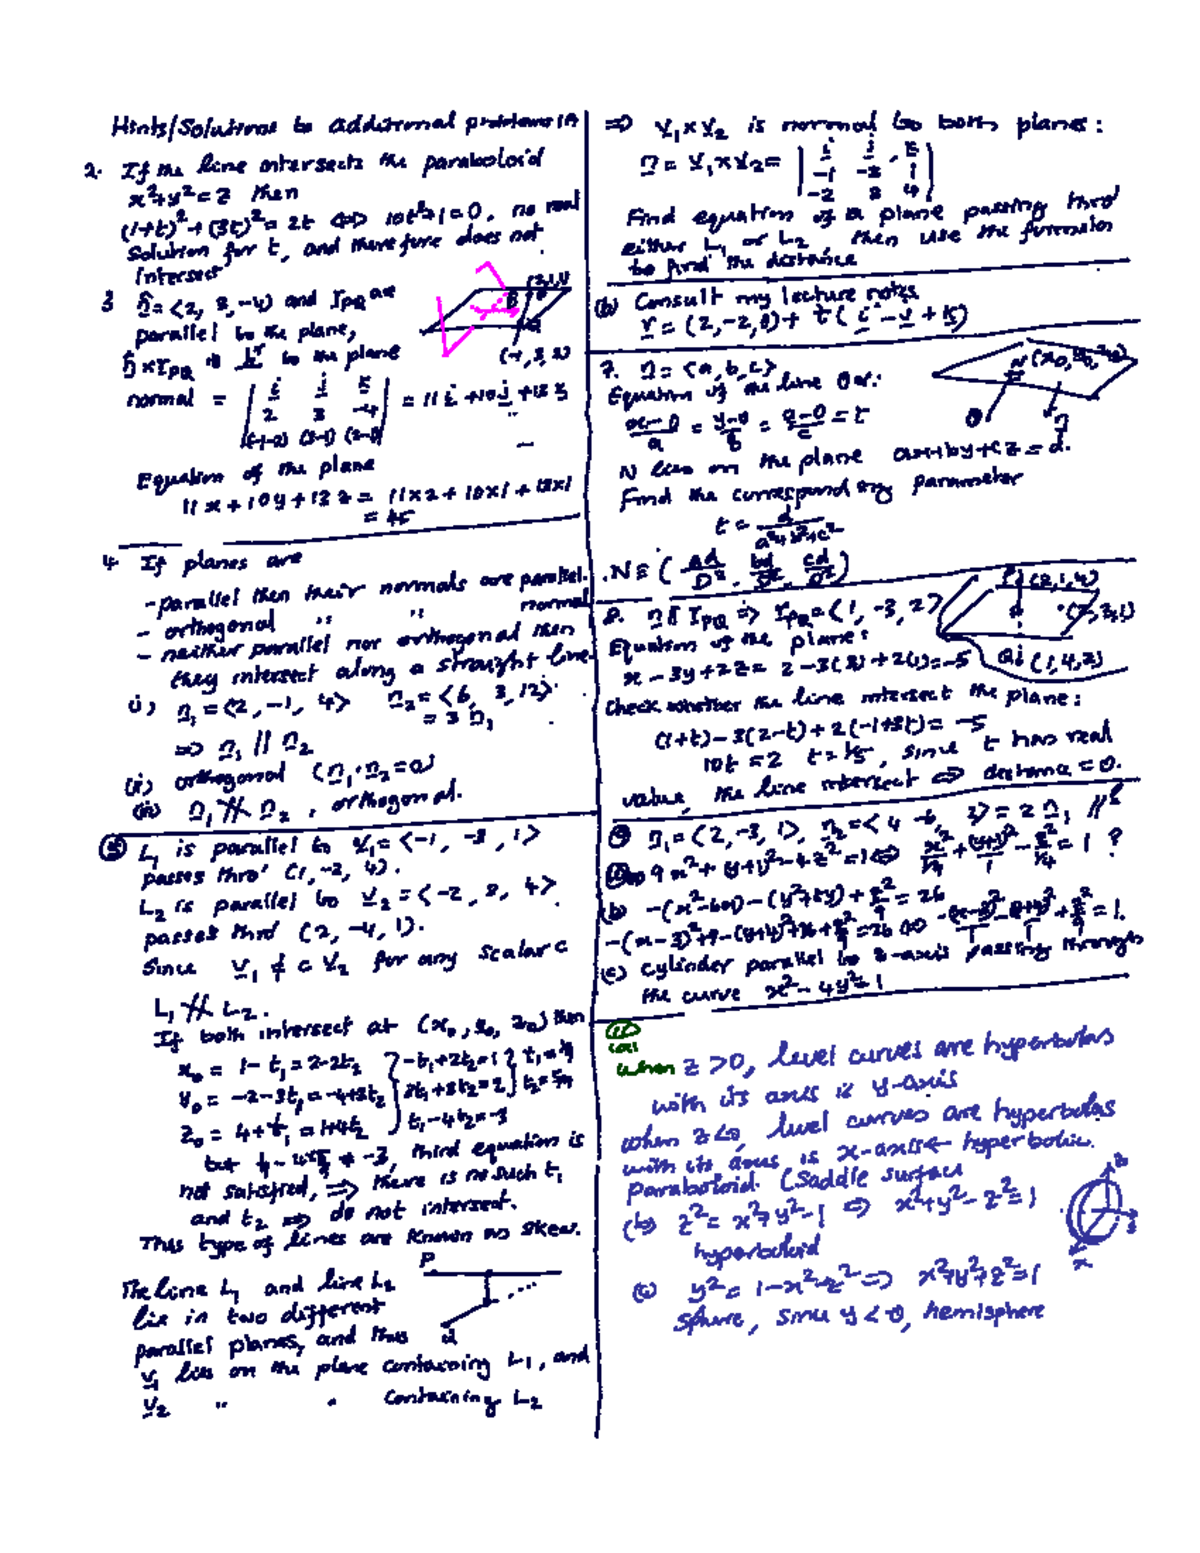 Hints/Solutions to additional problems 1A
2. If the line intersects the paraboloid
x²+y²=z then
(1+t)²+(3t)²=2t ⟺ 10t²+1=0, no real
Solution for t, and therefore does not
intersect
3 n̂=<2, 3, -4> and r_PQ are
parallel to the plane,
n̂×r_PQ is ⊥r to the plane
(2,1,1)
(-1,3,2)
normal = | i j k | = 11i+10j+13k
2 3 -4
(-1-2) (3-1) (2-1)
Equation of the plane
11x+10y+13z = 11×2+10×1+13×1
= 45
4. If planes are
- parallel then their normals are parallel.
- orthogonal " " normal
- neither parallel nor orthogonal then
they intersect along a straight line.
(i) n₁=<2,-1, 4> n₂=<6, 3, 12>
= 3 n₁
⇒ n₁ // n₂
(ii) orthogonal (n₁·n₂=0)
(iii) n₁ ∦ n₂, orthogonal.
5 L₁ is parallel to v₁=<-1, -3, 1>
passes thro' (1,-2, 4).
L₂ is parallel to v₂=<-2, 3, 4>
passes thro (2, -4, 1).
Since v₁ ≠ c v₂ for any scalar c
L₁ ∦ L₂.
If both intersect at (x₀, y₀, z₀) then
x₀ = 1-t₁=2-2t₂ } -t₁+2t₂=1
y₀ = -2-3t₁=-4+3t₂ } 3t₁+3t₂=2
z₀ = 4+t₁=1+4t₂ } t₁-4t₂=-3
≠ -3, third equation is
not satisfied, ⇒ there is no such t₁
and t₂ ⇒ do not intersect.
This type of lines are known as skew.
The line L₁ and line L₂
lie in two different
parallel planes, and thus
P
Q
v₁ lies on the plane containing L₁, and
v₂ " " containing L₂
⇒ v₁×v₂ is normal to both planes:
n = v₁×v₂ = | i j k |
-1 -3 1
-2 3 4
Find equation of a plane passing thro
either L₁ or L₂, then use the formula
to find the distance
(b) Consult my lecture notes
r = (2,-2,0)+ t(i - j + k)
7. n=<a,b,c>
Equation of the line
N(x₀,y₀,z₀)
(x-0)/a = (y-0)/b = (z-0)/c = t
N lies on the plane ax+by+cz=d.
Find the corresponding parameter
t = d/(a²+b²+c²)
N ≡ (ad/D², bd/D², cd/D²)
8. n ∥ r_PQ ⇒ r_PQ=<1, -3, 2>
P(2,1,4)
Q(1,4,2)
Equation of the plane:
x-3y+2z= 2-3(3)+2(1)=-5
Check whether the line intersect the plane:
(1+t)-3(2-t)+2(-1+3t)= -5
10t=2 t=1/5, since t has real
value, the line intersect ⇒ distance=0.
9 n₁=<2,-3,1>, n₂=<4 -6, 2>=2 n₁
9x²+(y+1)²-4z²=1 ⟺ x²/(1/9)+(y+1)²/1-z²/(1/4)=1 ?
(b) -(x²-6x)-(y²+8y)+z²/9=26
-(x-3)²+9-(y+4)²+16+z²/9=26 ⟺ -(x-3)²/1-(y+4)²/1+z²/9=1.
(c) Cylinder parallel to z-axis passing through
the curve x²-4y²=1
11
(a)
when z>0, level curves are hyperbolas
with its axis is y-axis
when z<0, level curves are hyperbolas
with its axis is x-axis ← hyperbolic
paraboloid. (Saddle surface
(b) z²= x²+y²-1 ⇒ x²+y²-z²=1
hyperboloid
(c) y²= 1-x²-z² ⇒ x²+y²+z²=1
Sphere, since y<0, hemisphere